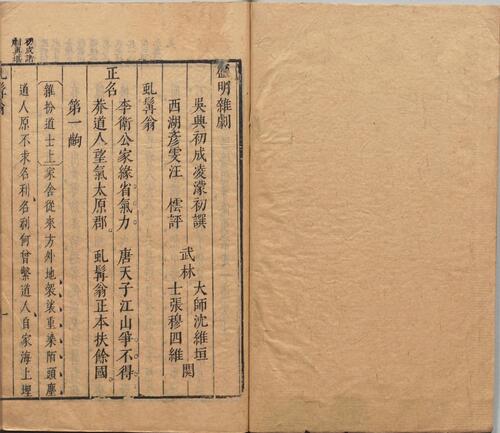 盛明雜劇
吳興初成凌濛初譔
西湖彥雯汪 櫄評
武林
大師沈維垣
士張穆四維
閱
虬髯翁
正名
李衛公家緣省氣力 唐天子江山爭不得
養道人望氣太原郡 虬髯翁正本扶餘國
第一齣
雜扮道士上 家舍從來方外地袈裟重染陌頭塵
道人原不求名利名利何曾繫道人自家海上埋
虬髯翁
一